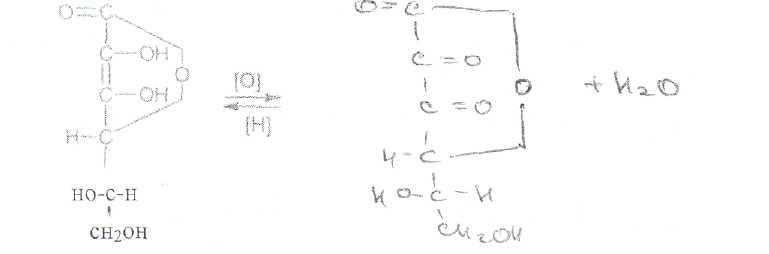 O=C
C-OH
O
C-OH
H-C
HO-C-H
CH2OH
[O]
[H]
O=C
C=O
O
C=O
H-C
HO-C-H
CH2OH
+H2O